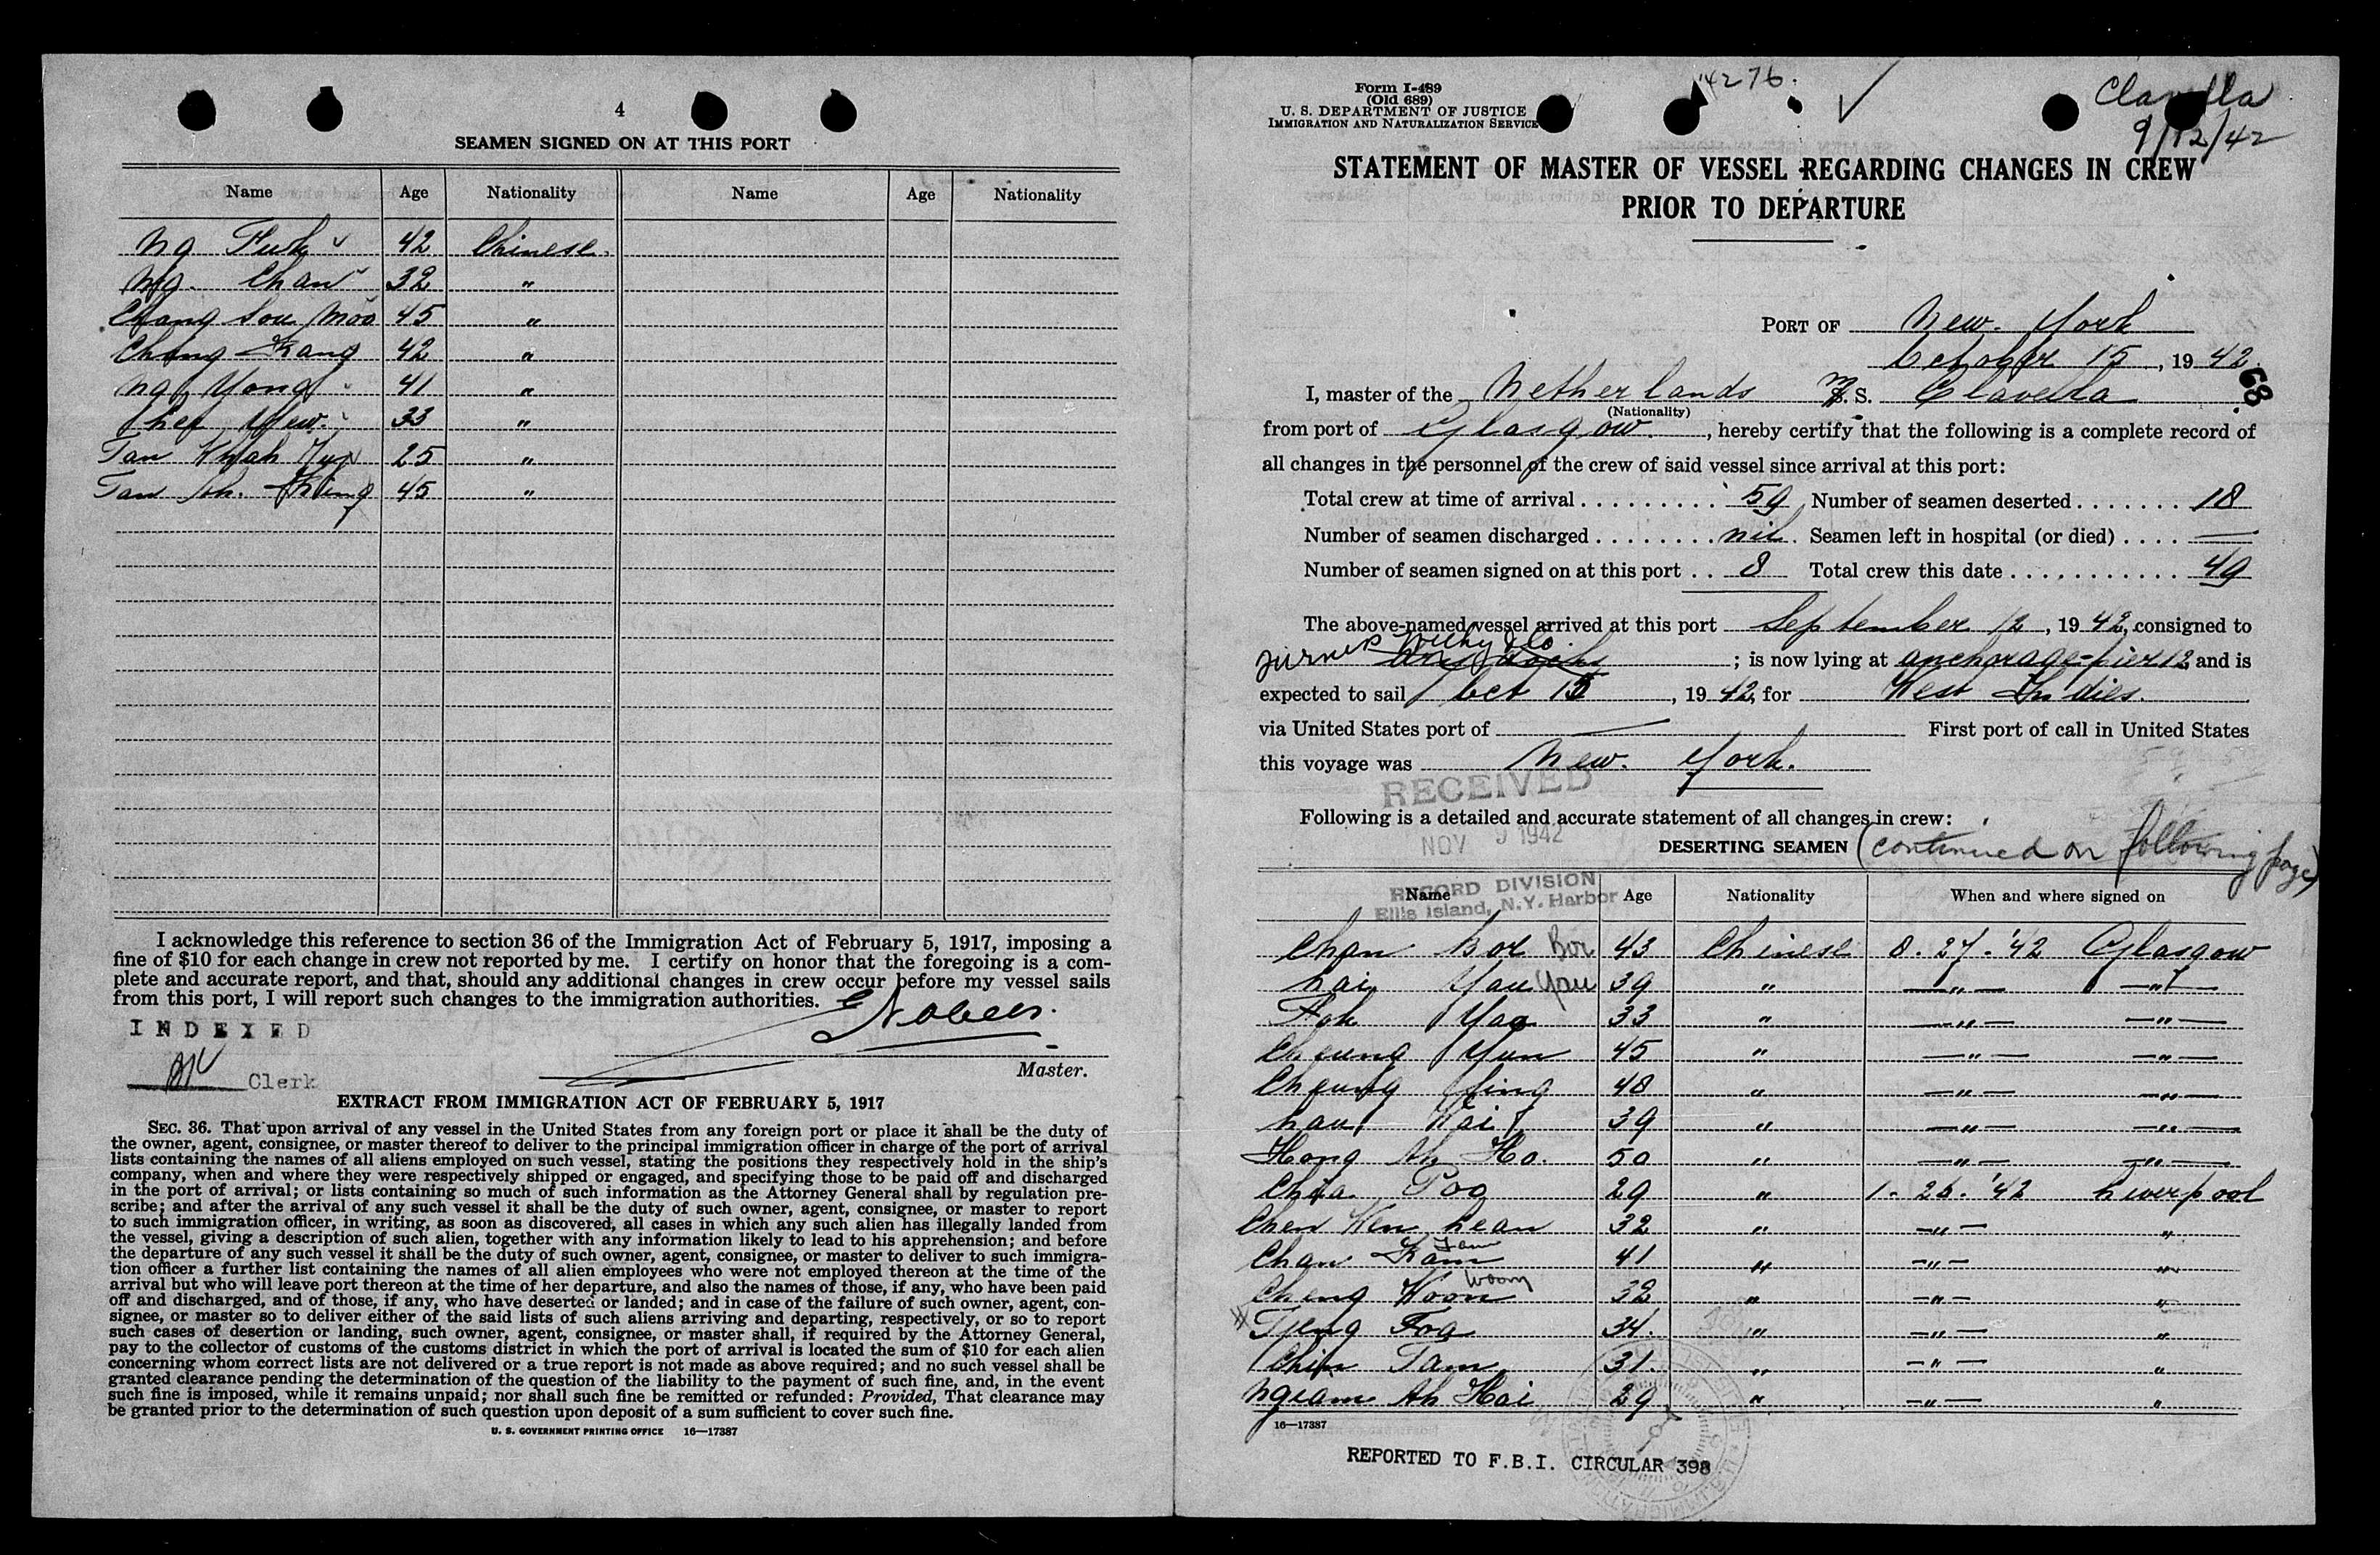 4
SEAMEN SIGNED ON AT THIS PORT
Name Age Nationality Name Age Nationality
Ng 42 Chinese.
Ng. Chan 32 "
Chang Sou Moo 45 "
Chong Kang 42 "
Ng Yong 41 "
Yew. 33 "
Tan Khah 25 "
Tan 45 "
I acknowledge this reference to section 36 of the Immigration Act of February 5, 1917, imposing a
fine of $10 for each change in crew not reported by me. I certify on honor that the foregoing is a com-
plete and accurate report, and that, should any additional changes in crew occur before my vessel sails
from this port, I will report such changes to the immigration authorities.
INDEXED
Clerk
Master.
EXTRACT FROM IMMIGRATION ACT OF FEBRUARY 5, 1917
SEC. 36. That upon arrival of any vessel in the United States from any foreign port or place it shall be the duty of
the owner, agent, consignee, or master thereof to deliver to the principal immigration officer in charge of the port of arrival
lists containing the names of all aliens employed on such vessel, stating the positions they respectively hold in the ship's
company, when and where they were respectively shipped or engaged, and specifying those to be paid off and discharged
in the port of arrival; or lists containing so much of such information as the Attorney General shall by regulation pre-
scribe; and after the arrival of any such vessel it shall be the duty of such owner, agent, consignee, or master to report
to such immigration officer, in writing, as soon as discovered, all cases in which any such alien has illegally landed from
the vessel, giving a description of such alien, together with any information likely to lead to his apprehension; and before
the departure of any such vessel it shall be the duty of such owner, agent, consignee, or master to deliver to such immigra-
tion officer a further list containing the names of all alien employees who were not employed thereon at the time of the
arrival but who will leave port thereon at the time of her departure, and also the names of those, if any, who have been paid
off and discharged, and of those, if any, who have deserted or landed; and in case of the failure of such owner, agent, con-
signee, or master so to deliver either of the said lists of such aliens arriving and departing, respectively, or so to report
such cases of desertion or landing, such owner, agent, consignee, or master shall, if required by the Attorney General,
pay to the collector of customs of the customs district in which the port of arrival is located the sum of $10 for each alien
concerning whom correct lists are not delivered or a true report is not made as above required; and no such vessel shall be
granted clearance pending the determination of the question of the liability to the payment of such fine, and, in the event
such fine is imposed, while it remains unpaid; nor shall such fine be remitted or refunded: Provided, That clearance may
be granted prior to the determination of such question upon deposit of a sum sufficient to cover such fine.
U. S. GOVERNMENT PRINTING OFFICE 16—17387
Form I-489
(Old 689)
U. S. DEPARTMENT OF JUSTICE
IMMIGRATION AND NATURALIZATION SERVICE
4276.
Clavella
9/12/42
STATEMENT OF MASTER OF VESSEL REGARDING CHANGES IN CREW
PRIOR TO DEPARTURE
PORT OF New York
October 15, 1942
68.
I, master of the Netherlands M. S. Clavella
(Nationality)
from port of Glasgow., hereby certify that the following is a complete record of
all changes in the personnel of the crew of said vessel since arrival at this port:
Total crew at time of arrival 59 Number of seamen deserted 18
Number of seamen discharged nil. Seamen left in hospital (or died) —
Number of seamen signed on at this port 8 Total crew this date 49
The above-named vessel arrived at this port September 12, 1942, consigned to
& Co. ; is now lying at anchorage-pier 12 and is
expected to sail Oct 15, 1942, for West Indies.
via United States port of — First port of call in United States
this voyage was New York.
RECEIVED
NOV 9 1942
RECORD DIVISION
Ellis Island, N.Y. Harbor
Following is a detailed and accurate statement of all changes in crew:
DESERTING SEAMEN (continued on following page)
Name Age Nationality When and where signed on
Chan Bor Bor 43 Chinese 8. 27. '42 Glasgow
Lai Yau Yau 39 " —"— —"—
Foh Yao 33 " —"— —"—
Cheung Yun 45 " —"— —"—
Cheung Ying 48 " —"— —"—
Lau Kai 39 " —"— —"—
Hong Ah Ho. 50 " —"— —"—
Chia Poo 29 " 1. 26. '42 Liverpool
Chen Ken Lean 32 " —"— "
Chan Kam 41 " —"— "
Cheng Koon Woong 32 " —"— "
Tjeng Foa 34. " —"— "
Chin Tam 31. " —"— "
Ngiam Ah Hai 29 " —"— "
16—17387
REPORTED TO F.B.I. CIRCULAR 398